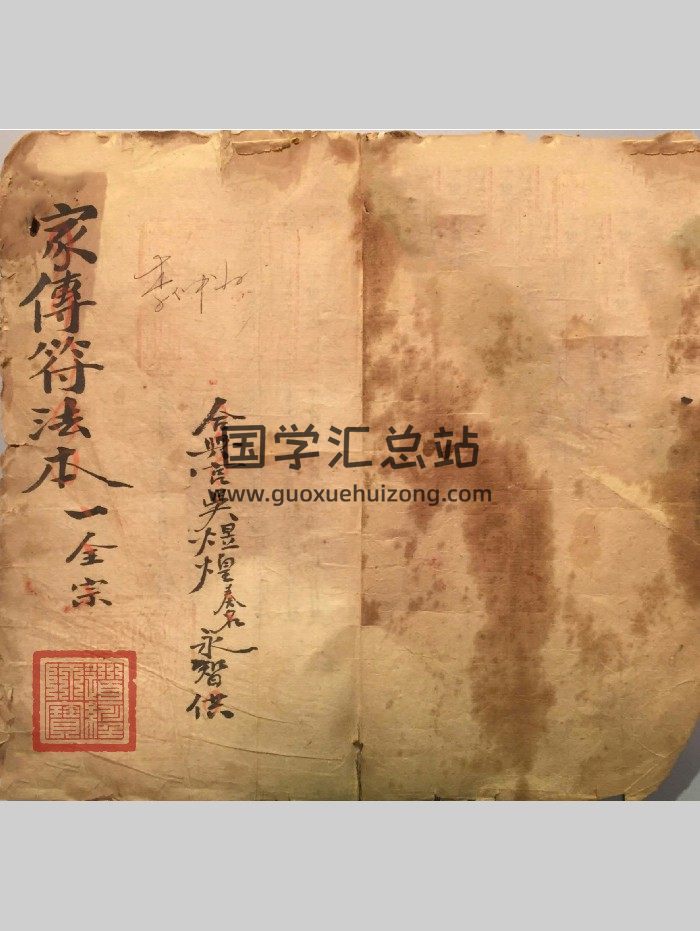 家傳符法本一全宗
合興宮吳煜煌奏名永智供
道經師寶
国学汇总站
www.guoxuehuizong.com